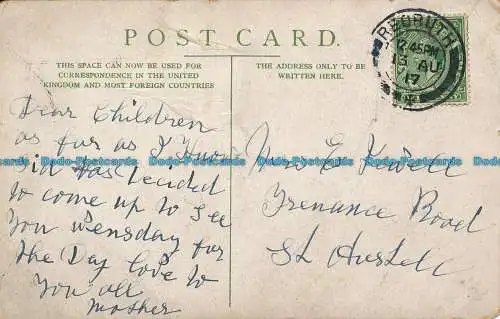 POST CARD.
THIS SPACE CAN NOW BE USED FOR
CORRESPONDENCE IN THE UNITED
KINGDOM AND MOST FOREIGN COUNTRIES
THE ADDRESS ONLY TO BE
WRITTEN HERE.
REDRUTH
12.45PM
13 AU
17
Dear Children
as far as I know
Sid has decided
to come up to see
you wensday for
the Day love to
you all
Mother
Mrs E Kewell
Trenance Road
St Austell
Dado-Postcards Dado-Postcards Dado-Postcards Dado-Postcards Dado-Postcards